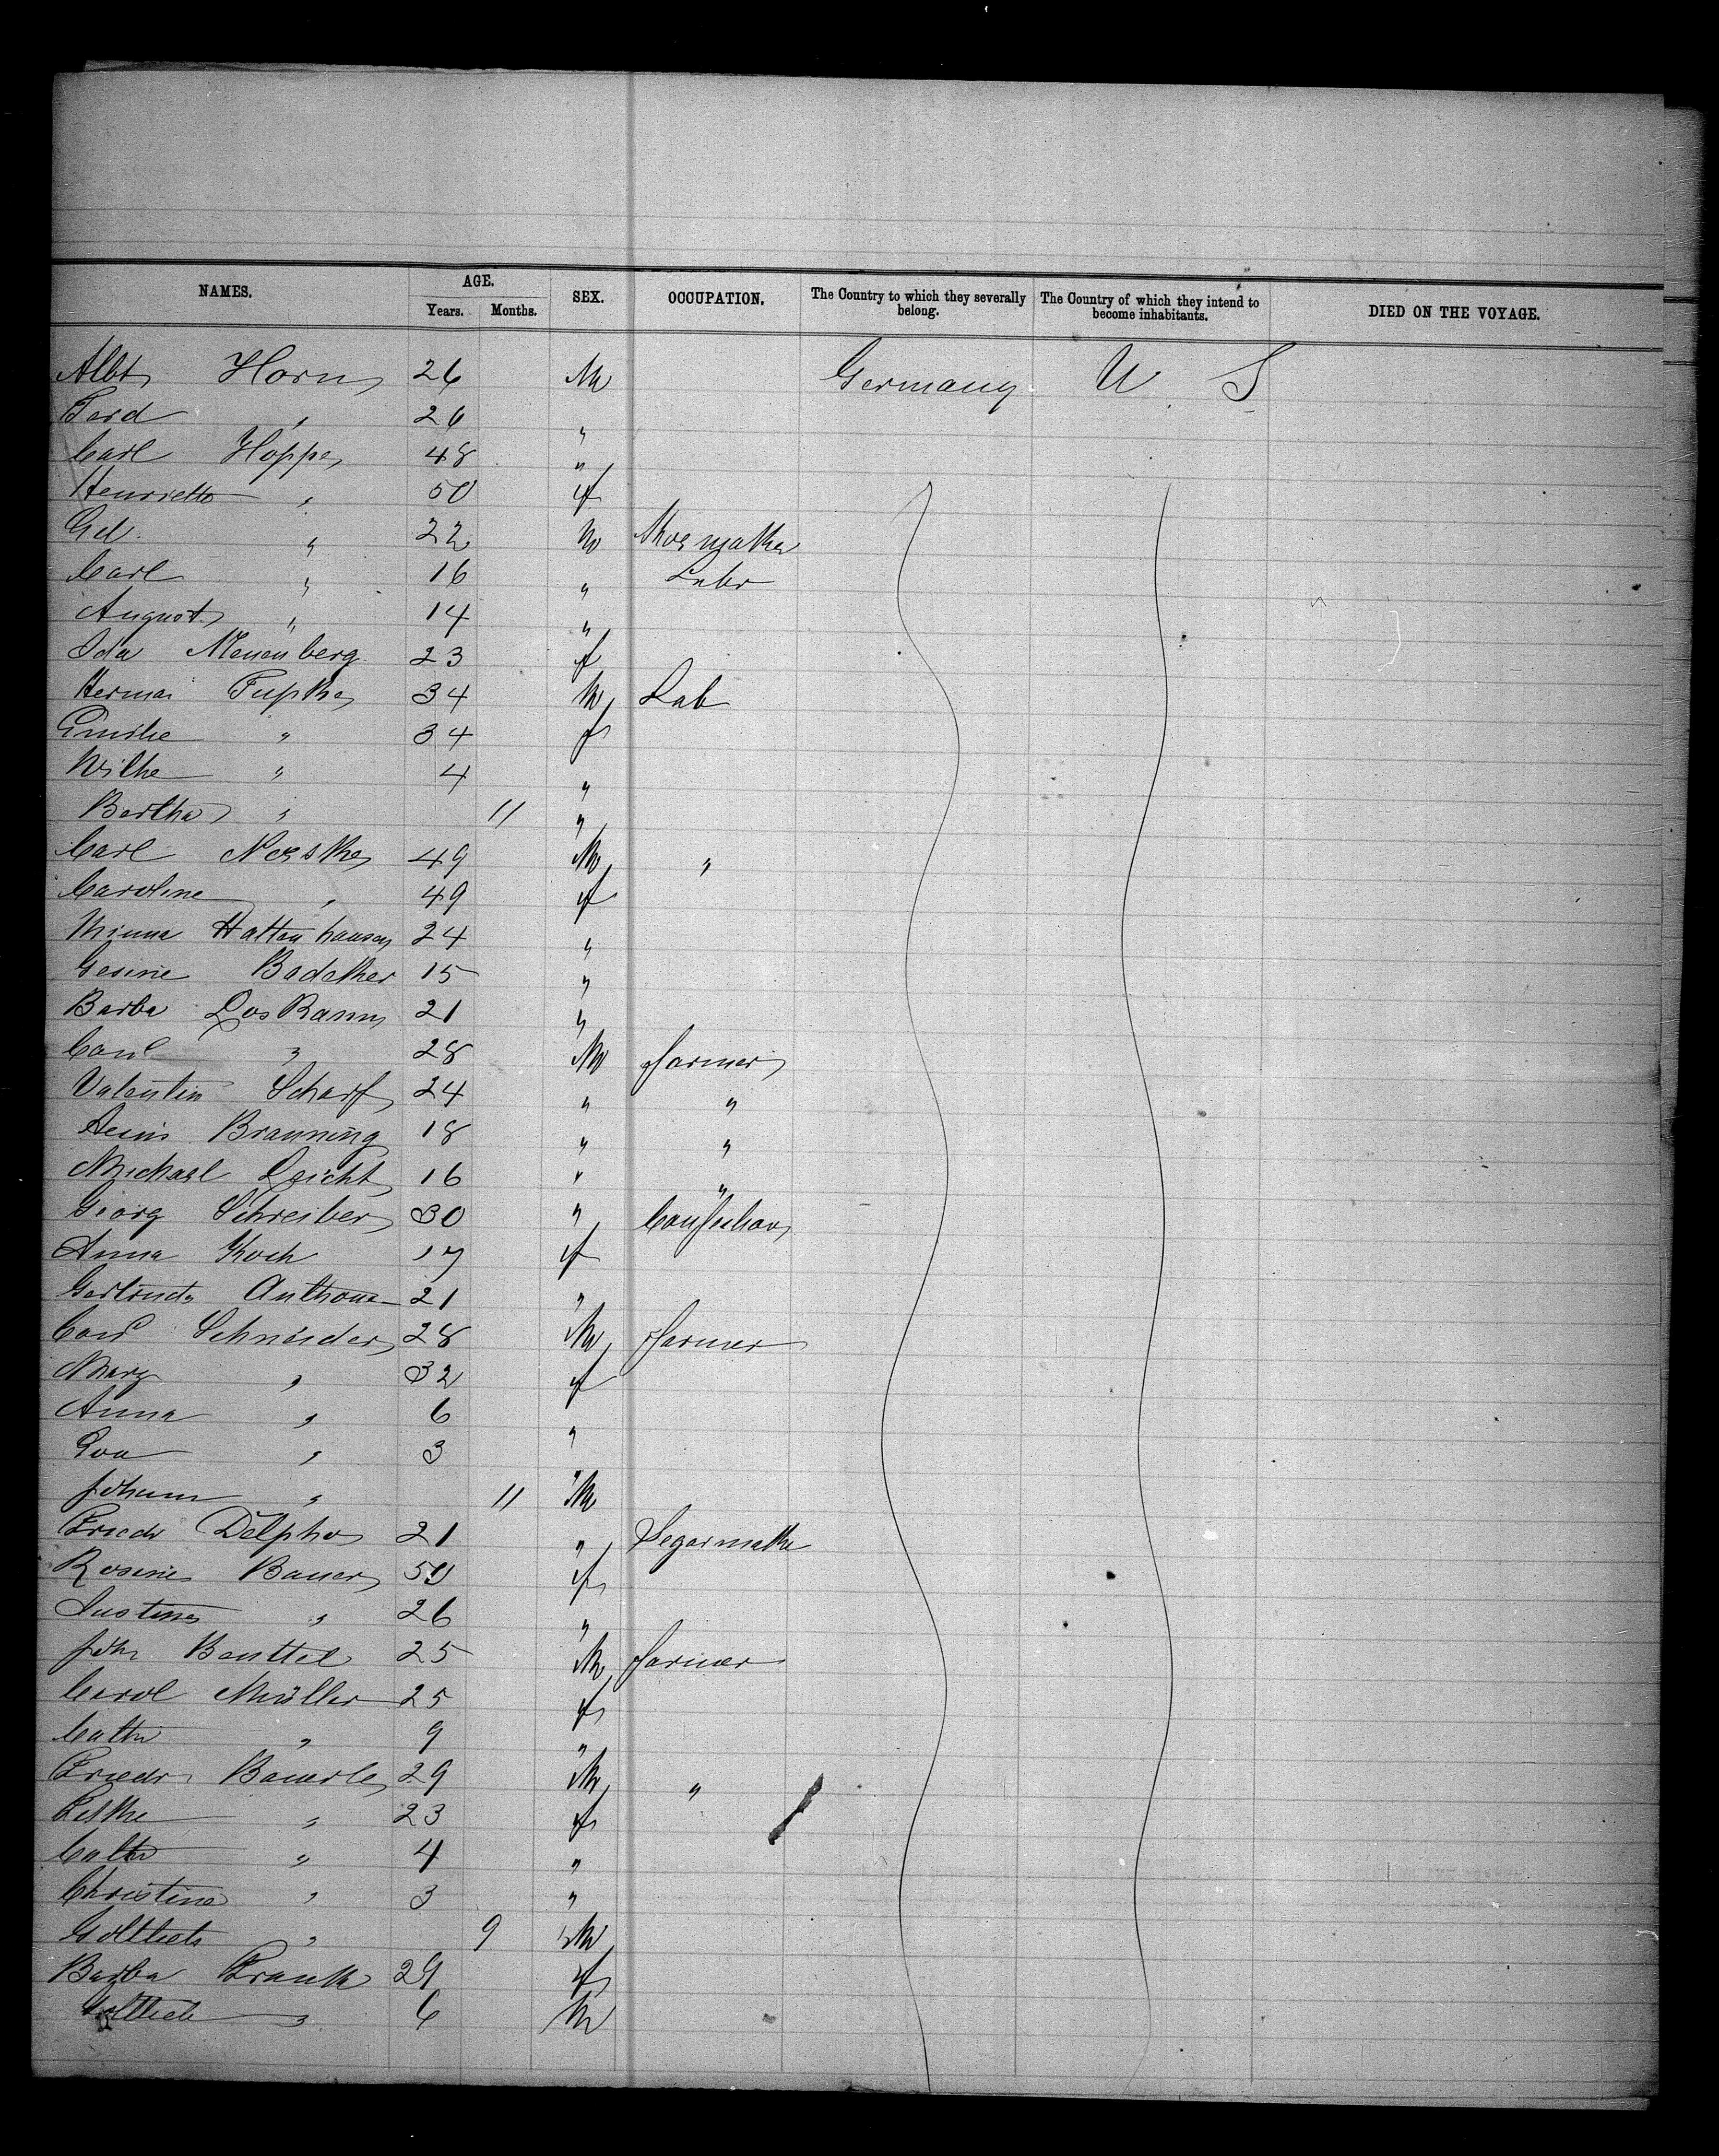 NAMES. AGE. SEX. OCCUPATION. The Country to which they severally belong. The Country of which they intend to become inhabitants. DIED ON THE VOYAGE.
Years. Months.
Albt Horn 26 M Germany U S
Ferd " 26 "
Carl Hoppe 48 "
Henriette " 50 f
Ed. " 22 M Shoemaker
Carl " 16 " Labr
August " 14 "
Ida 23 f
Herman 34 M Lab
Emilie " 34 f
Wilhe " 4 "
Bertha " 11 "
Carl Noeske 49 M "
Caroline " 49 f
Minna Hattenhausen 24 "
Gesine Badeker 15 "
Barba Loskam 21 "
" 28 M farmer
Valentin Scharf 24 " "
Brauning 18 " "
Michael Leicht 16 " "
Georg Schreiber 30 "
Anna Koch 17 f
Gertrude 21 "
Schneider 28 M farmer
Marg " 32 f
Anna " 6 "
Eva " 3 "
Johann " 11 M
Friedr Delpho 21 " Segarmaker
Rosine Bauer 59 f
Justine " 26 "
Joh Beuttel 25 M farmer
Carol Müller 25 f
Cath " 9 "
Friedr Bauerle 29 M "
" 23 f
Cath " 4 "
Christine " 3 "
Gottlieb " 9 M
Barba Frank 29 f
Gottlieb " 6 M